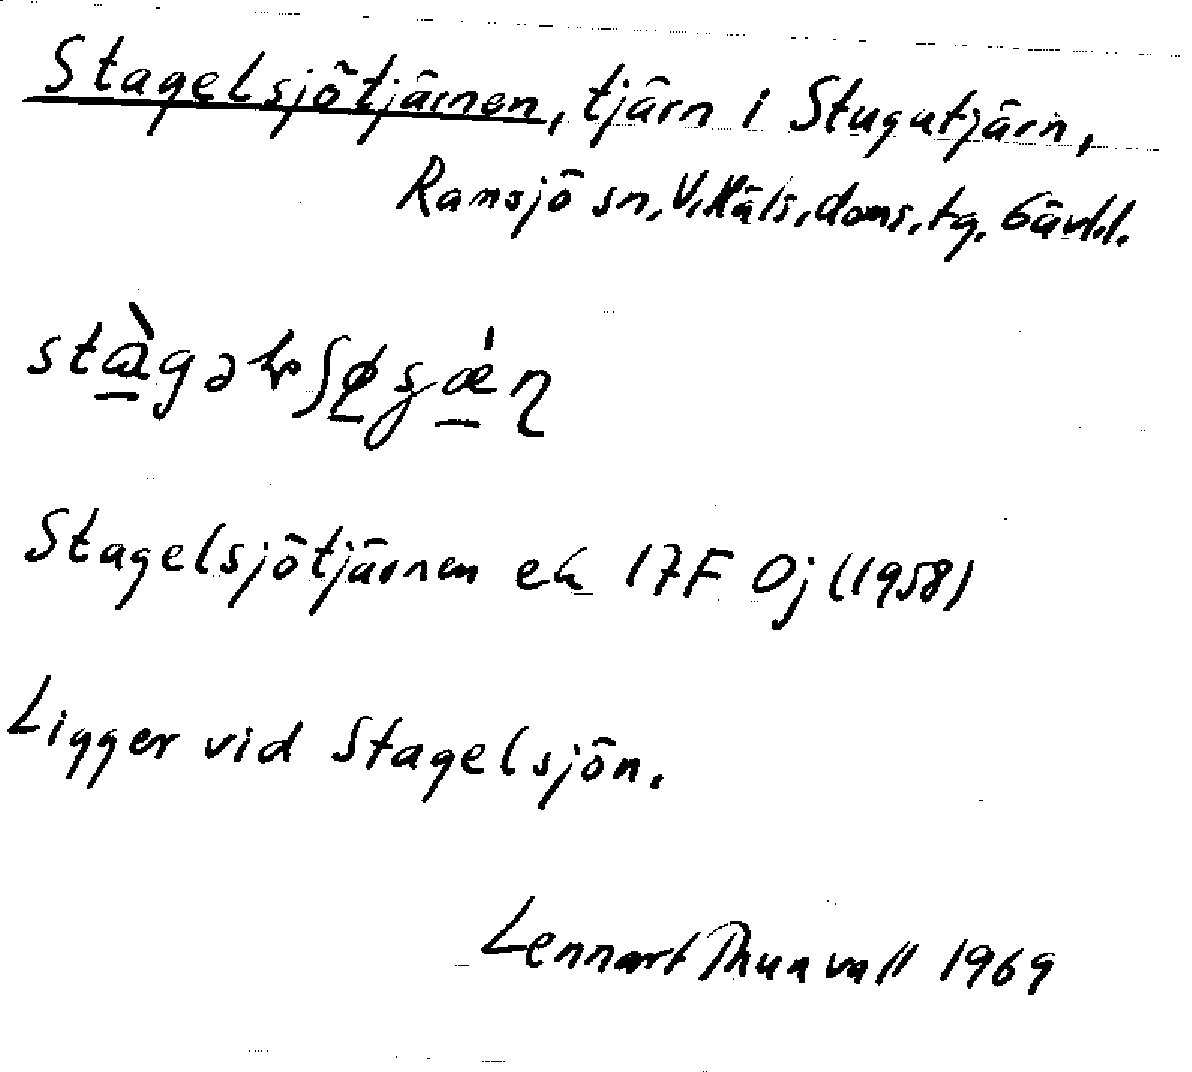 Stagelsjötjärnen, tjärn i Stugutjärn,
Ramsjö sn, V. Häls. doms. tg. Gävl.l.
Stagelsjötjärnen ek 17F 0j (1958)
Ligger vid Stagelsjön.
Lennart Thunvall 1969